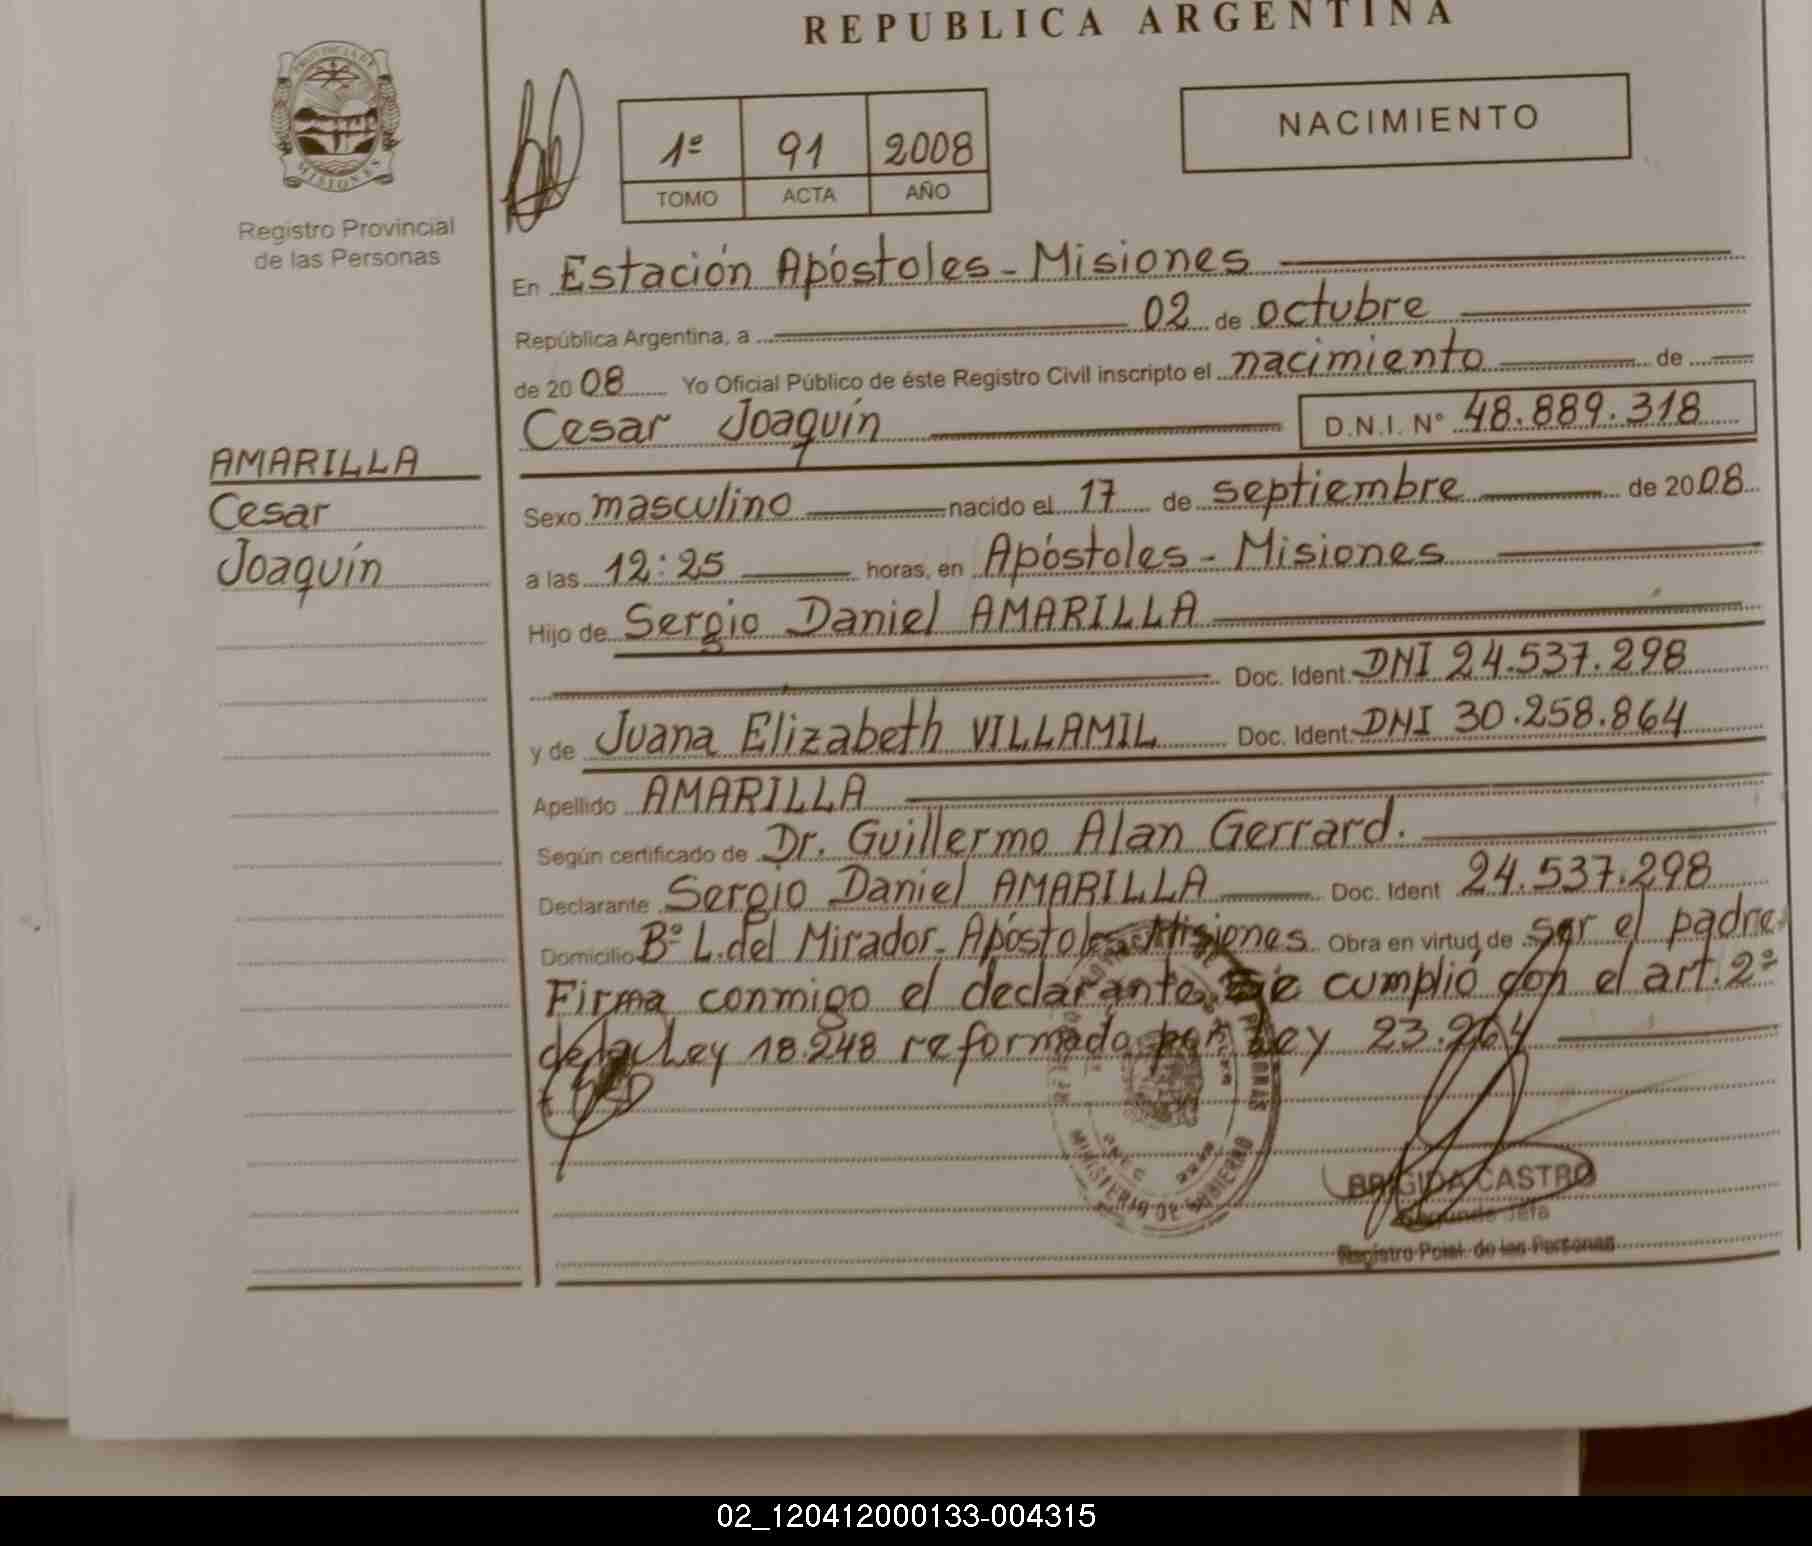 REPUBLICA ARGENTINA
PROVINCIA DE
MISIONES
Registro Provincial
de las Personas
NACIMIENTO
1º 91 2008
TOMO ACTA AÑO
En Estación Apóstoles - Misiones
República Argentina, a 02 de octubre
de 2008 Yo Oficial Público de éste Registro Civil inscripto el nacimiento de
Cesar Joaquín D.N.I. Nº 48.889.318
AMARILLA
Cesar
Joaquín
Sexo masculino nacido el 17 de septiembre de 2008
a las 12:25 horas, en Apóstoles - Misiones
Hijo de Sergio Daniel AMARILLA
Doc. Ident. DNI 24.537.298
y de Juana Elizabeth VILLAMIL Doc. Ident. DNI 30.258.864
Apellido AMARILLA
Según certificado de Dr. Guillermo Alan Gerrard.
Declarante Sergio Daniel AMARILLA Doc. Ident 24.537.298
Domicilio Bº L. del Mirador - Apóstoles - Misiones Obra en virtud de ser el padre.
Firma conmigo el declarante. Se cumplió con el art. 2º
de la Ley 18.248 reformado por Ley 23.264
MINISTERIO DE GOBIERNO
BRIGIDA CASTRO
Segunda Jefa
Registro Pcial. de las Personas
02_120412000133-004315